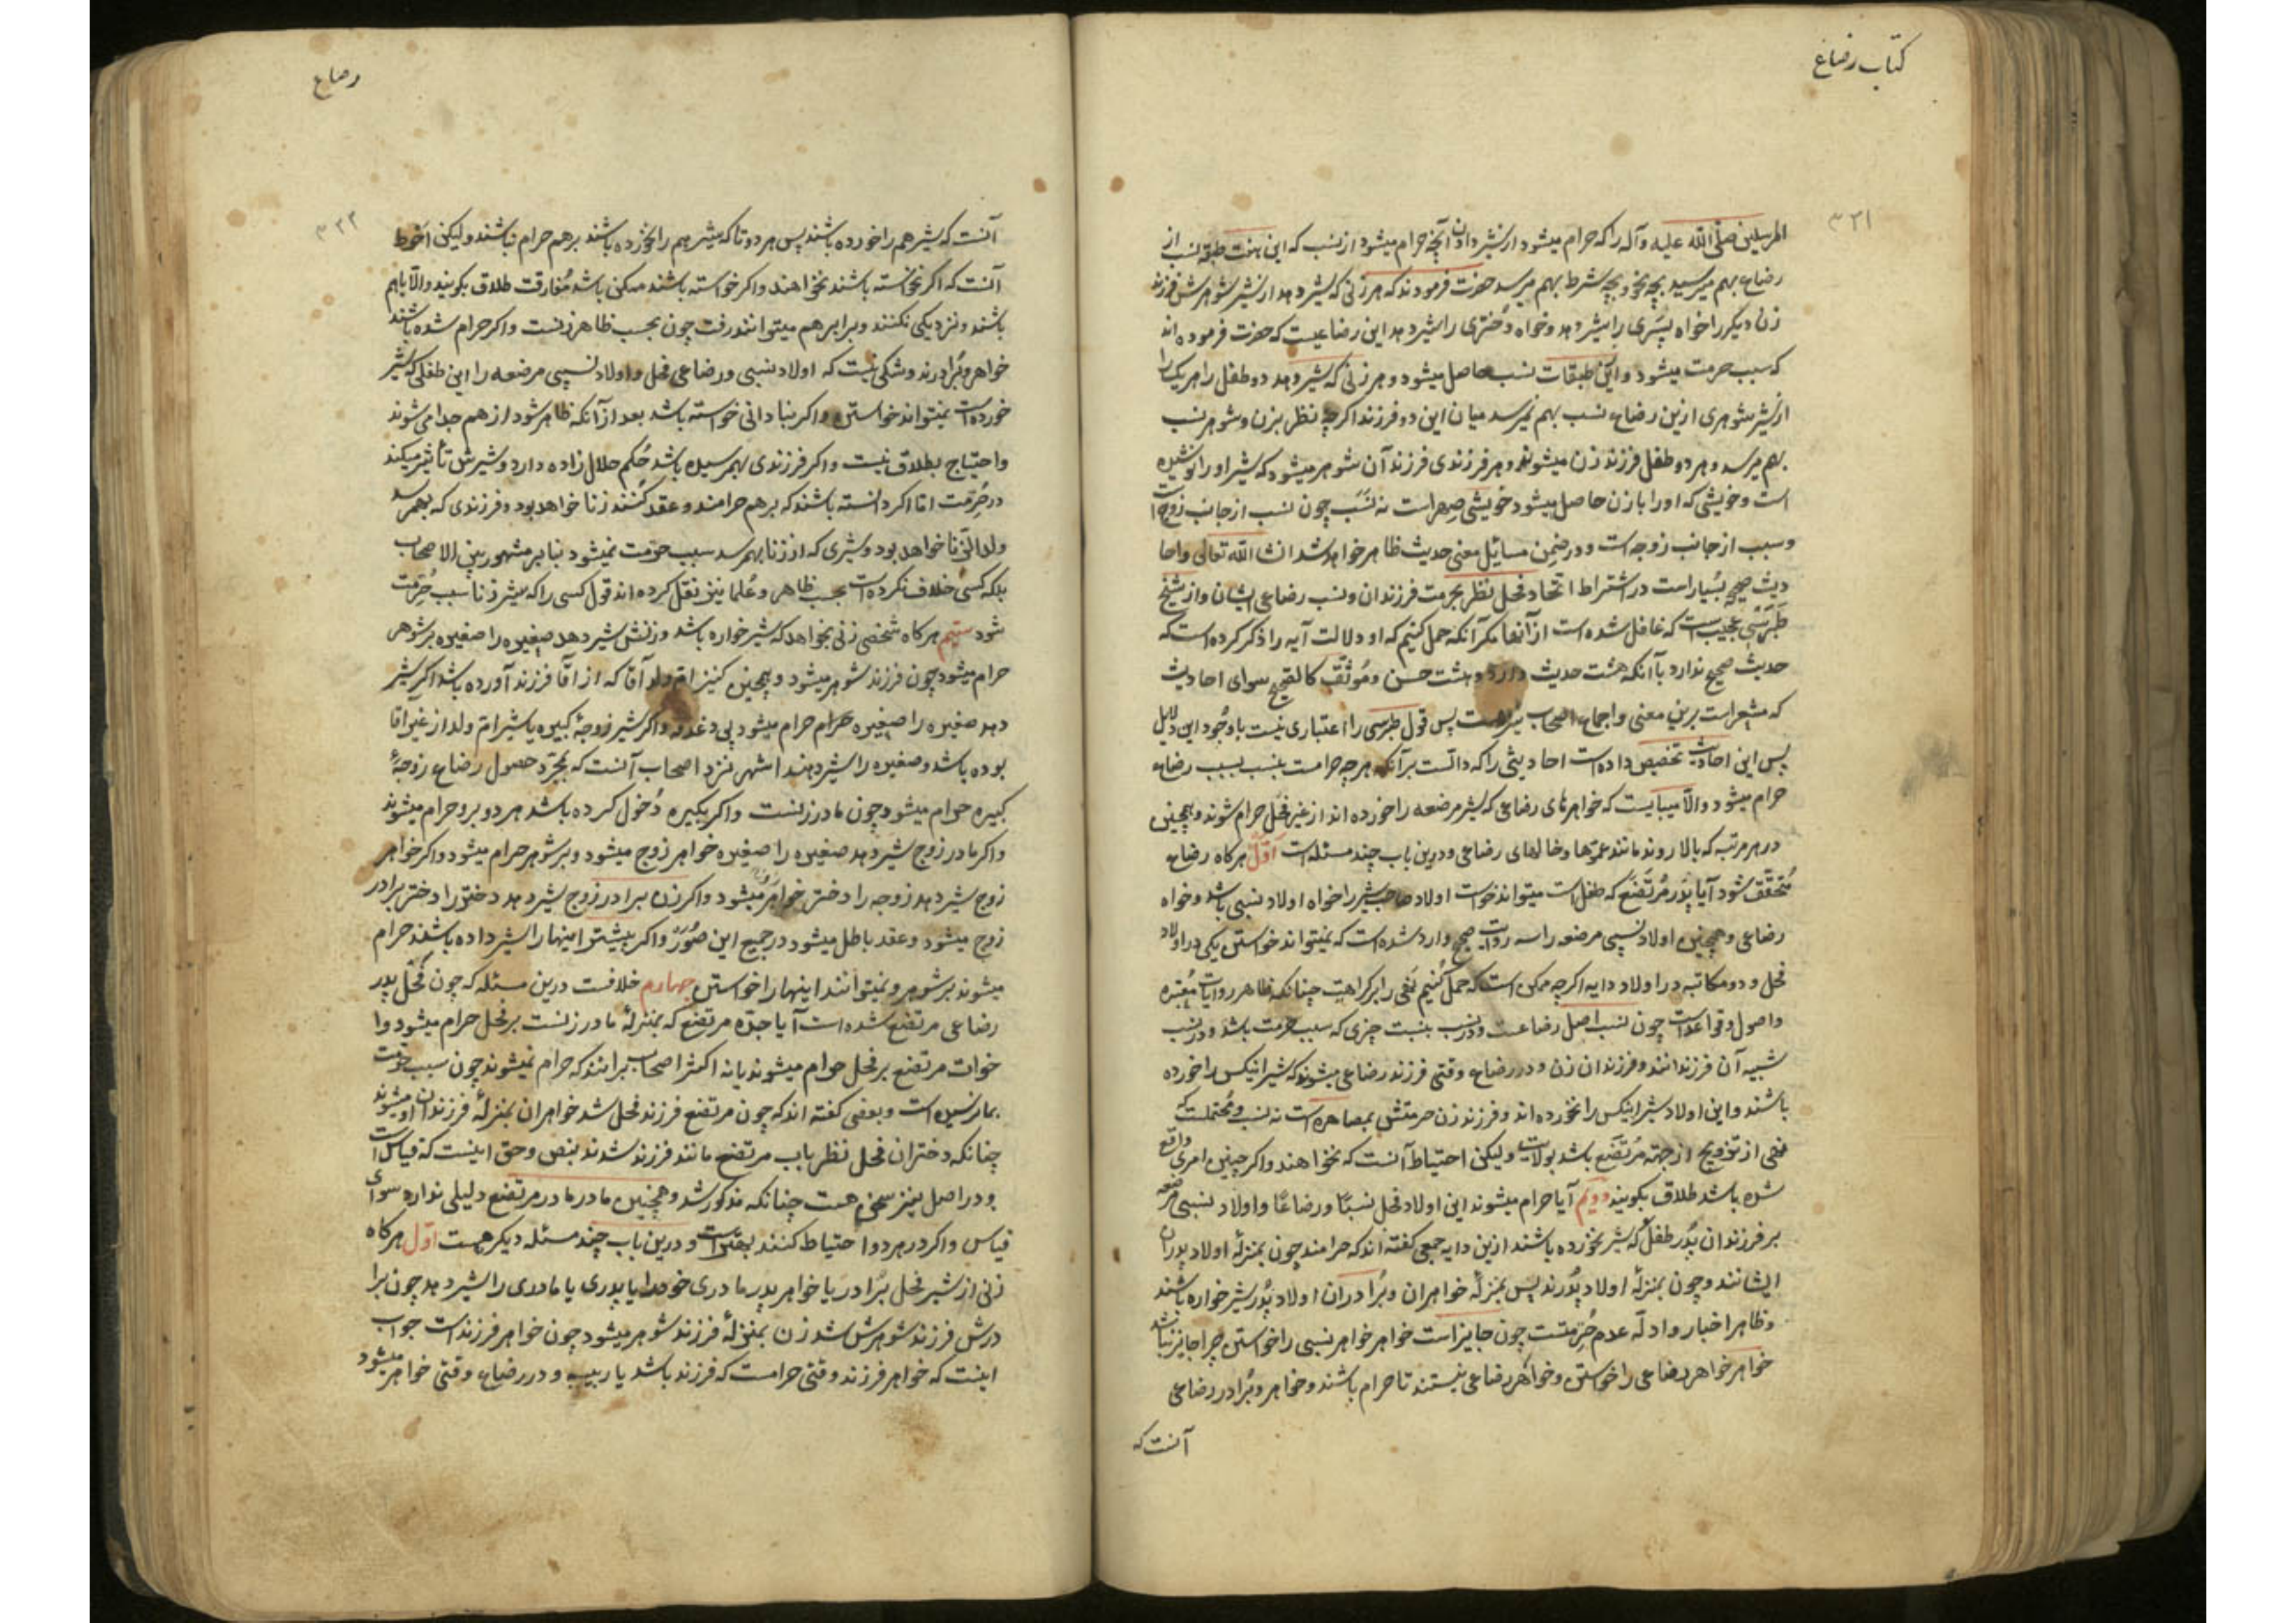 کتاب رضاع
۳۲۱
المرسلین صلّی الله علیه وآله را که حرام میشود از شیر دادن آنچه حرام میشود از نسب که این هفت طبقه نسب از
رضاع بهم میرسید بچه نحو و بچه شرط بهم میرسد حضرت فرمودند که هر زنی که شیر دهد از شیر شوهرش فرزند
زن دیگر را خواه پسری را شیر دهد و خواه دختری را شیر دهد این رضاعیست که حضرت فرموده اند
که سبب حرمت میشود و این طبقات نسب حاصل میشود و هر زنی که شیر دهد دو طفل را هر یک را
از شیر شوهری ازین رضاع نسب بهم نمیرسد میان این دو فرزند اگرچه نظر بزن و شوهر نسب
بهم میرسد و هر دو طفل فرزند زن میشوند و هر فرزندی فرزند آن شوهر میشود که شیر او را نوشیده
است و خویشی که او را با زن حاصل میشود خویشی صهر است نه نسب چون نسب از جانب زوج است
و سبب از جانب زوجه است و در ضمن مسائل معنی حدیث ظاهر خواهد شد انشا الله تعالی واحا
دیث صحیحه بسیار است در اشتراط اتحاد فحل نظر بحرمت فرزندان و نسب رضاعی ایشان و از شیخ
طبرسی عجیب است که غافل شده است از آنها مکر آنکه حمل کنیم که او دلالت آیه را ذکر کرده است که
حدیث صحیح ندارد با آنکه هشت حدیث دارد و هشت حسن و موثّق کالصحیح سوای احادیث
که مشعر است برین معنی و اجماع اصحاب شده است پس قول طبرسی را اعتباری نیست با وجود این دلایل
پس این احادیث تخصیص داده است احادیثی را که دالست برآنکه هرچه حرامست بنسب بسبب رضاع
حرام میشود والّا میبایست که خواهرهای رضاعی که شیر مرضعه را خورده اند از غیر فحل حرام شوند و همچنین
در هر مرتبه که بالا روند مانند عمّتها و خالهای رضاعی و درین باب چند مسئله است اوّل هرکاه رضاع
متحقق شود آیا پدر مرتضع که طفل است میتواند خواست اولاد صاحب شیر را خواه اولاد نسبی باشد و خواه
رضاعی و همچنین اولاد نسبی مرضعه را سه روایت صحیح وارد شده است که نمیتواند خواستن یکی در اولاد
فحل و دو مکاتبه در اولاد دایه اکرچه ممکن است که حمل کنیم نفی را بر کراهیت چنانکه ظاهر روایات معتبره
و اصول و قواعد است چون نسب اصل رضاعست و در نسب بنسبت چیزی که سبب حرمت باشد و در نسب
شبیه آن فرزندانند و فرزندان زن و در رضاع وقتی فرزند رضاعی میشوند که شیر اینکس را خورده
باشند و این اولاد شیر اینکس را نخورده اند و فرزند زن حرمتش بمصاهره است نه نسب و محتملست که
نهی از تزویج از جهة مرتضع باشد بولایت ولیکن احتیاط آنست که نخواهند و اکر چنین امری واقع
شده باشد طلاق بکویند دویم آیا حرام میشوند این اولاد فحل نسباً و رضاعاً و اولاد نسبی مرضعه
بر فرزندان پدر طفل که شیر نخورده باشند ازین دایه جمعی کفته اند که حرامند چون بمنزلۀ اولاد پدران
ایشانند و چون بمنزلۀ اولاد پدرند پس بمنزلۀ خواهران و برادران اولاد پدر شیرخواره باشند
و ظاهر اخبار و ادلّه عدم حرمتست چون جایز است خواهر خواهر نسبی را خواستن چرا جایز نباشد
خواهر خواهر رضاعی را خواستن و خواهر رضاعی نیستند تا حرام باشند و خواهر و برادر رضاعی
آنست که
رضاع
۳۲۲
آنست که شیر هم را خورده باشند پس هر دو تا که شیر هم را نخورده باشند برهم حرام نباشند ولیکن احوط
آنست که اکر نخواسته باشند نخواهند و اکر خواسته باشند ممکن باشد مفارقت طلاق بکویند والّا باهم
باشند و نزدیکی نکنند و برابر هم میتوانند رفت چون بحسب ظاهر زنست و اکر حرام شده باشند
خواهر و برادرند و شکی نیست که اولاد نسبی و رضاعی فحل و اولاد نسبی مرضعه را این طفلی که شیر
خورده است نمیتواند خواستن و اکر بنادانی خواسته باشد بعد از آنکه ظاهر شود از هم جدا می شوند
و احتیاج بطلاق نیست و اکر فرزندی بهمرسیده باشد حکم حلال زاده دارد و شیرش تأثیر میکند
در حرمت امّا اکر دانسته باشند که برهم حرامند و عقد کنند زنا خواهد بود و فرزندی که بهمرسد
ولد الزّنا خواهد بود و شیری که از زنا بهمرسد سبب حرمت نمیشود بنا بر مشهور بین الاصحاب
بلکه کسی خلاف نکرده است بحسب ظاهر و علما نیز نقل کرده اند قول کسی را که شیر زنا سبب حرمت
شود سیّم هرکاه شخصی زنی بخواهد که شیرخواره باشد و زنش شیر دهد صغیره را صغیره بر شوهر
حرام میشود چون فرزند شوهر میشود و همچنین کنیز امّ ولد آقا که از آقا فرزند آورده باشد اکر شیر
دهد صغیره را صغیره حرام میشود بی دغدغه و اکر شیر زوجۀ کبیره یا شیر امّ ولد از غیر آقا
بوده باشد و صغیره را شیر دهند اشهر نزد اصحاب آنست که بمجرّد حصول رضاع زوجۀ
کبیره حرام میشود چون مادر زنست و اکر بکبیره دخول کرده باشد هر دو برو حرام میشوند
و اکر مادر زوج شیر دهد صغیره را صغیره خواهر زوج میشود و بر شوهر حرام میشود و اکر خواهر
زوج شیر دهد زوجه را دختر خواهر میشود و اکر زن برادر زوج شیر دهد دختر را دختر برادر
زوج میشود و عقد باطل میشود در جمیع این صور و اکر بیشتر اینها را شیر داده باشند حرام
میشوند بر شوهر و نمیتوانند اینها را خواستن چهارم خلافست درین مسئله که چون فحل پدر
رضاعی مرتضع شده است آیا جدّه مرتضع که بمنزلۀ مادر زنست بر فحل حرام میشود و ا
خوات مرتضع بر فحل حرام میشوند یا نه اکثر اصحاب برانند که حرام نمیشوند چون سبب حرمت
بما نرسیده است و بعضی کفته اند که چون مرتضع فرزند فحل شد خواهران بمنزلۀ فرزندان او میشوند
چنانکه دختران فحل نظر باب مرتضع مانند فرزند شدند بنص و حق اینست که قیاس است
و در اصل نیز سخن هست چنانکه مذکور شد و همچنین مادر مادر مرتضع دلیلی ندارد سوای
قیاس و اکر در هر دو احتیاط کنند بهتر است و درین باب چند مسئله دیکر هست اوّل هرکاه
زنی از شیر فحل برادر یا خواهر پدر مادری خود را یا پدری یا مادری را شیر دهد چون برا
درش فرزند شوهرش شد زن بمنزلۀ فرزند شوهر میشود چون خواهر فرزند است جواب
اینست که خواهر فرزند وقتی حرامست که فرزند باشد یا ربیبه و در رضاع وقتی خواهر میشود